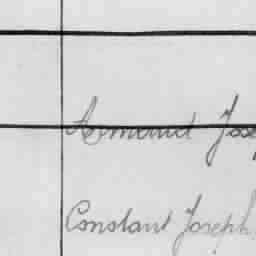 Armand Jose
Constant Joseph